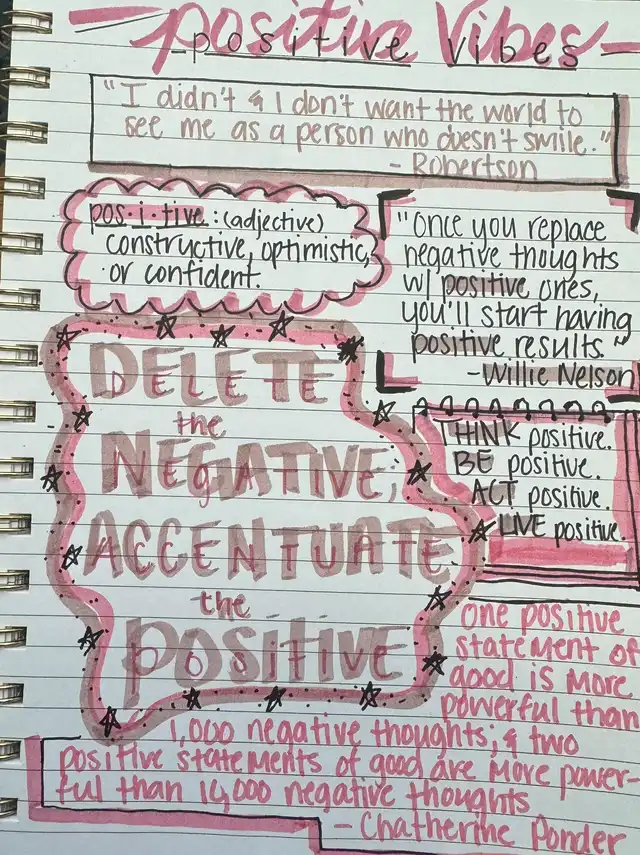 positive vibes
positive vibes
"I didn't & I don't want the world to
see me as a person who doesn't smile."
- Robertson
pos·i·tive: (adjective)
constructive, optimistic,
or confident.
"Once you replace
negative thoughts
w/ positive ones,
you'll start having
positive results."
-Willie Nelson
DELETE
the
NEGATIVE,
ACCENTUATE
the
POSITIVE
THINK positive.
BE positive.
ACT positive.
LIVE positive.
One positive
statement of
good is more
powerful than
1,000 negative thoughts; & two
positive statements of good are more power-
ful than 14,000 negative thoughts
- Chatherine Ponder